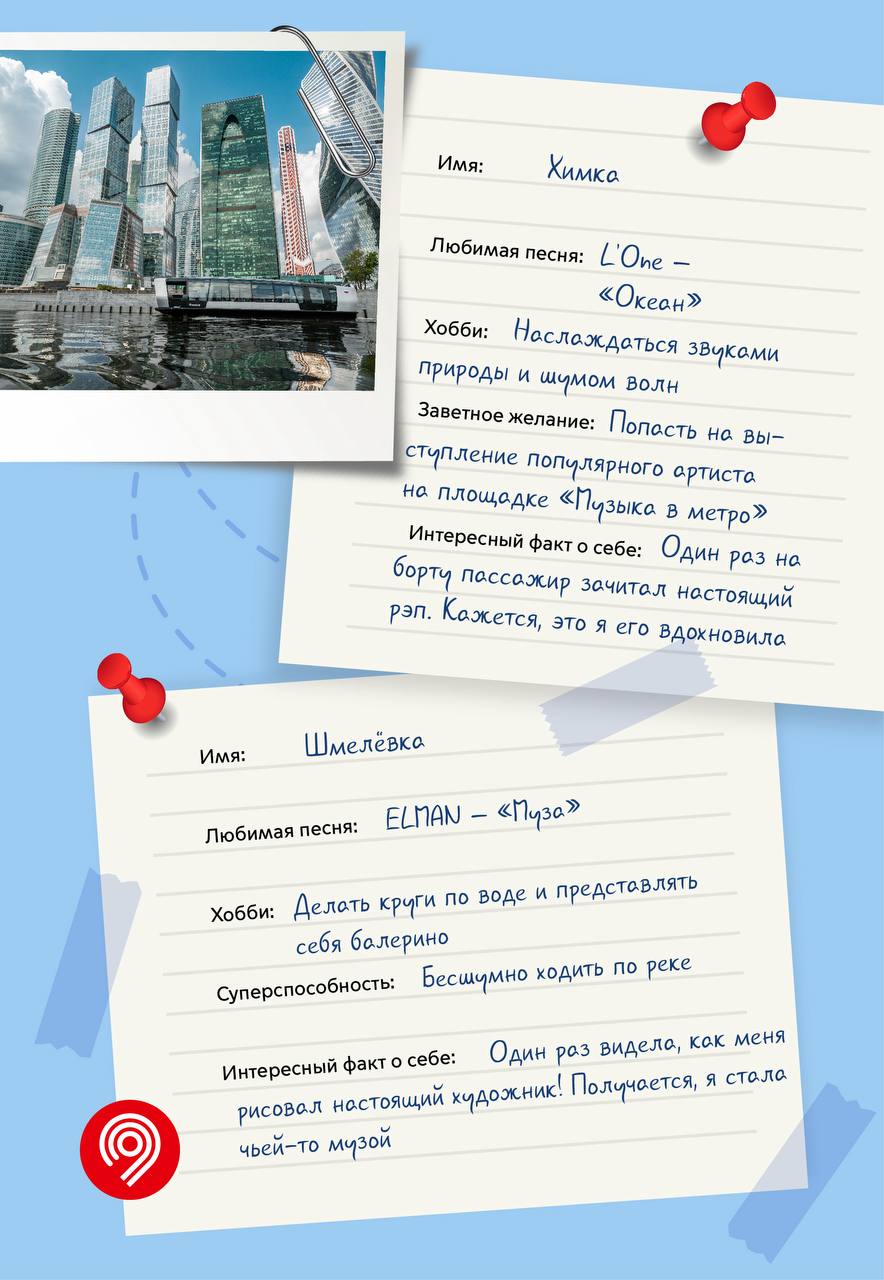 Имя: Химка
Любимая песня: L'One –
«Океан»
Хобби: Наслаждаться звуками
природы и шумом волн
Заветное желание: Попасть на вы-
ступление популярного артиста
на площадке «Музыка в метро»
Интересный факт о себе: Один раз на
борту пассажир зачитал настоящий
рэп. Кажется, это я его вдохновила
Имя: Шмелёвка
Любимая песня: ELMAN – «Муза»
Хобби: Делать круги по воде и представлять
себя балерино
Суперспособность: Бесшумно ходить по реке
Интересный факт о себе: Один раз видела, как меня
рисовал настоящий художник! Получается, я стала
чьей-то музой